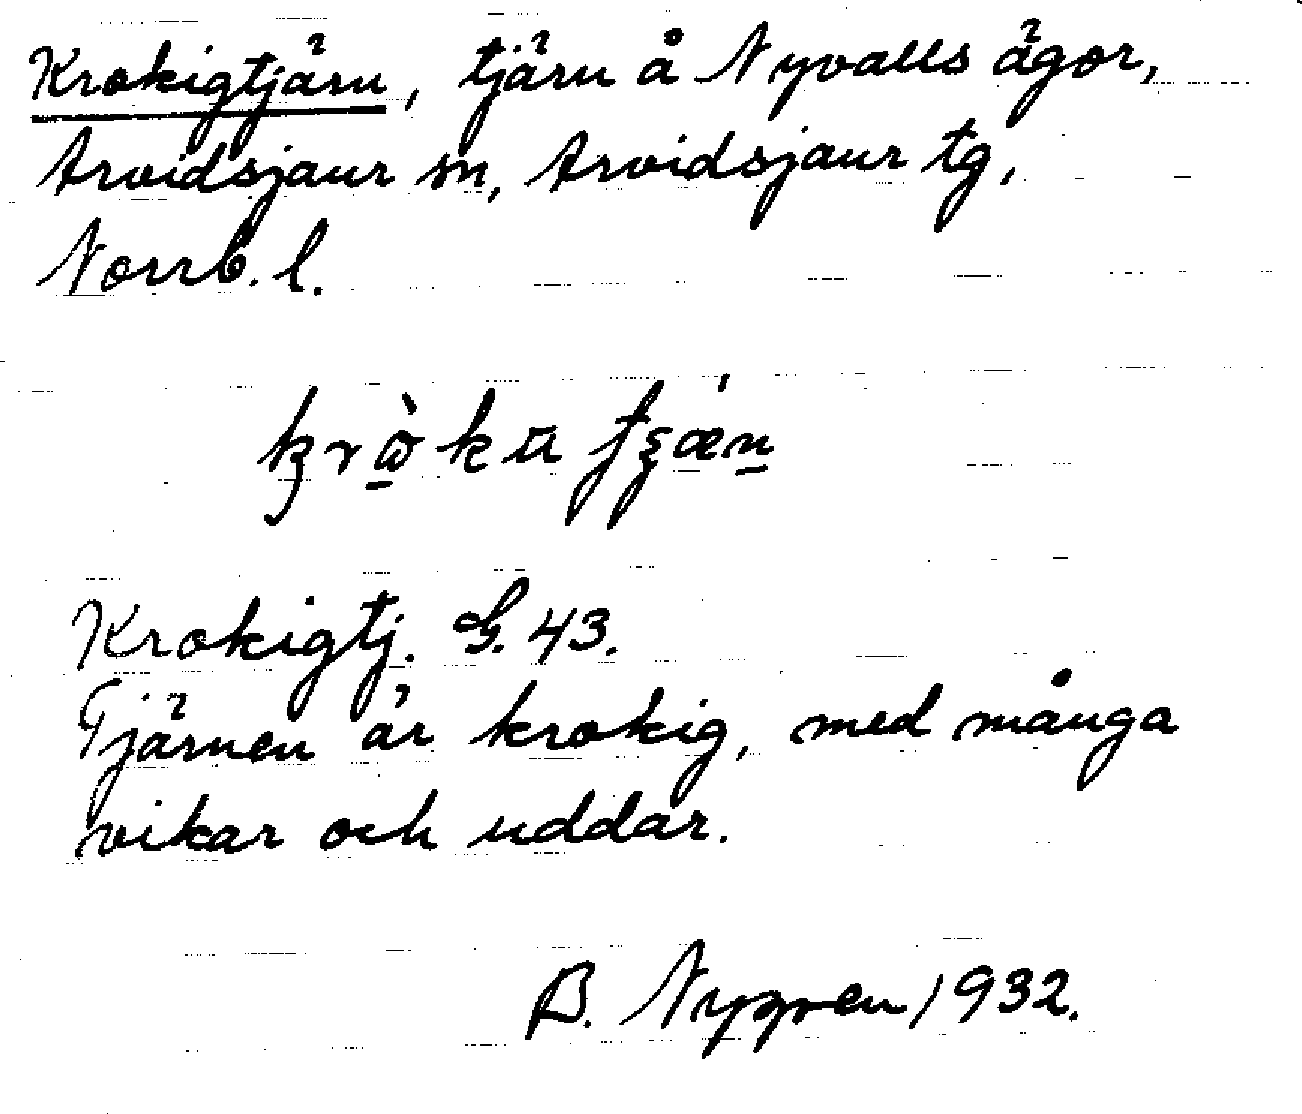 Krokigtjärn, tjärn å Nyvalls ägor,
Arvidsjaur sn, Arvidsjaur tg,
Norrb. l.
Krokigtj. G. 43.
Tjärnen är krokig, med många
vikar och uddar.
B. Nygren 1932.